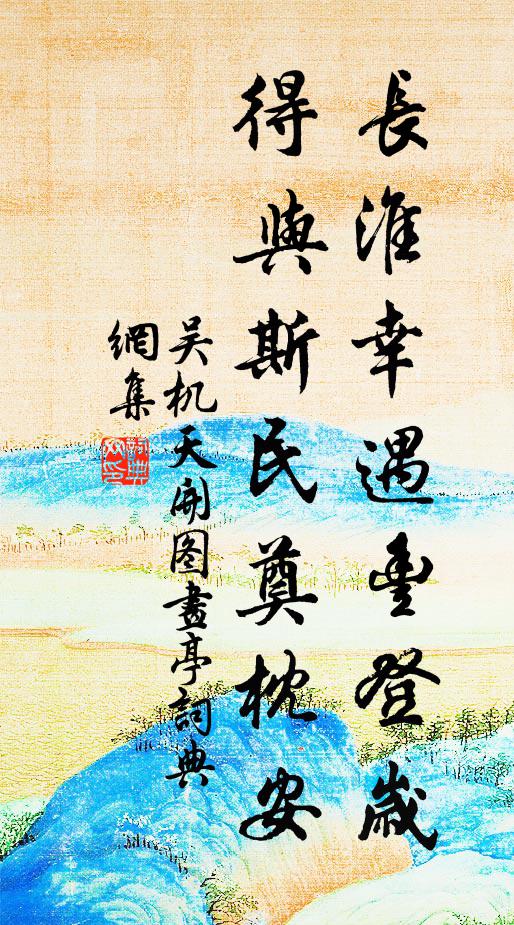 長淮幸遇豊登歲
得與斯民奠枕安
吴机天開图畫亭詞典
網集